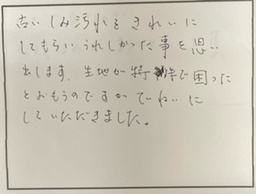 古いしみ汚れをきれいに
してもらいうれしかった事を思い
出します。生地が特殊で困った
とおもうのですがていねいに
していただきました。